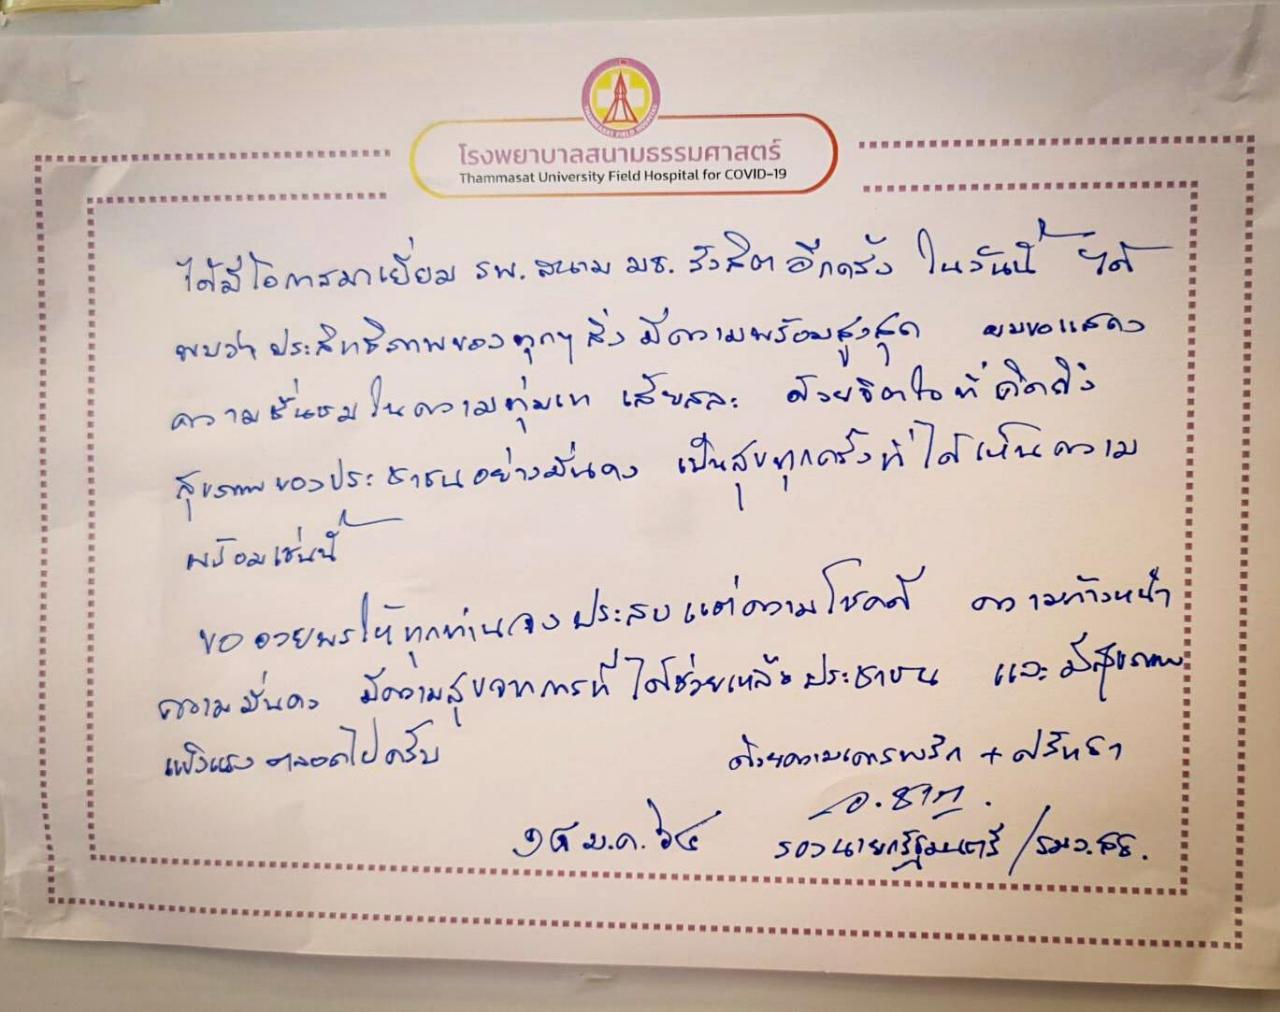 THAMMASAT FIELD HOSPITAL
โรงพยาบาลสนามธรรมศาสตร์
Thammasat University Field Hospital for COVID-19
ได้มีโอกาสมาเยี่ยม รพ. สนาม มธ. รังสิต อีกครั้ง ในวันนี้ ได้
พบว่า ประสิทธิภาพของทุกๆ สิ่ง มีความพร้อมสูงสุด ผมขอแสดง
ความชื่นชมในความทุ่มเท เสียสละ ด้วยจิตใจที่คิดถึง
สุขภาพของประชาชนอย่างมั่นคง เป็นสุขทุกครั้งที่ได้เห็นความ
พร้อมเช่นนี้
ขออวยพรให้ทุกท่านจงประสบแต่ความโชคดี ความก้าวหน้า
ความมั่นคง มีความสุขจากการที่ได้ช่วยเหลือประชาชน และมีสุขภาพ
แข็งแรงตลอดไปครับ
ด้วยความเคารพรัก + ศรัทธา
๑๕ ม.ค. ๖๔
รองนายกรัฐมนตรี / รมว. สธ.